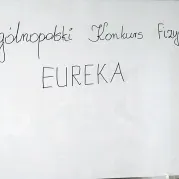 gólnopolski Konkurs Fizy
EUREKA